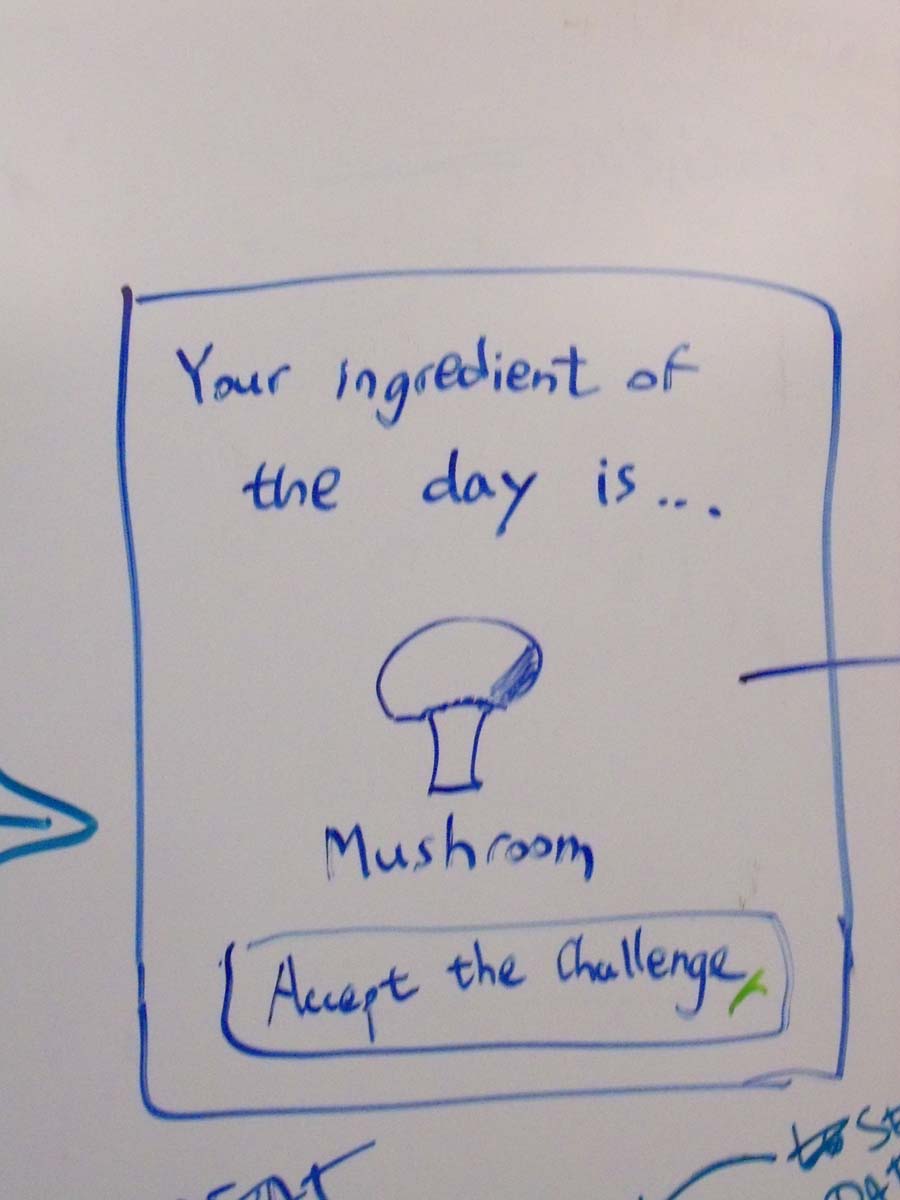 Your ingredient of
the day is...
Mushroom
Accept the Challenge